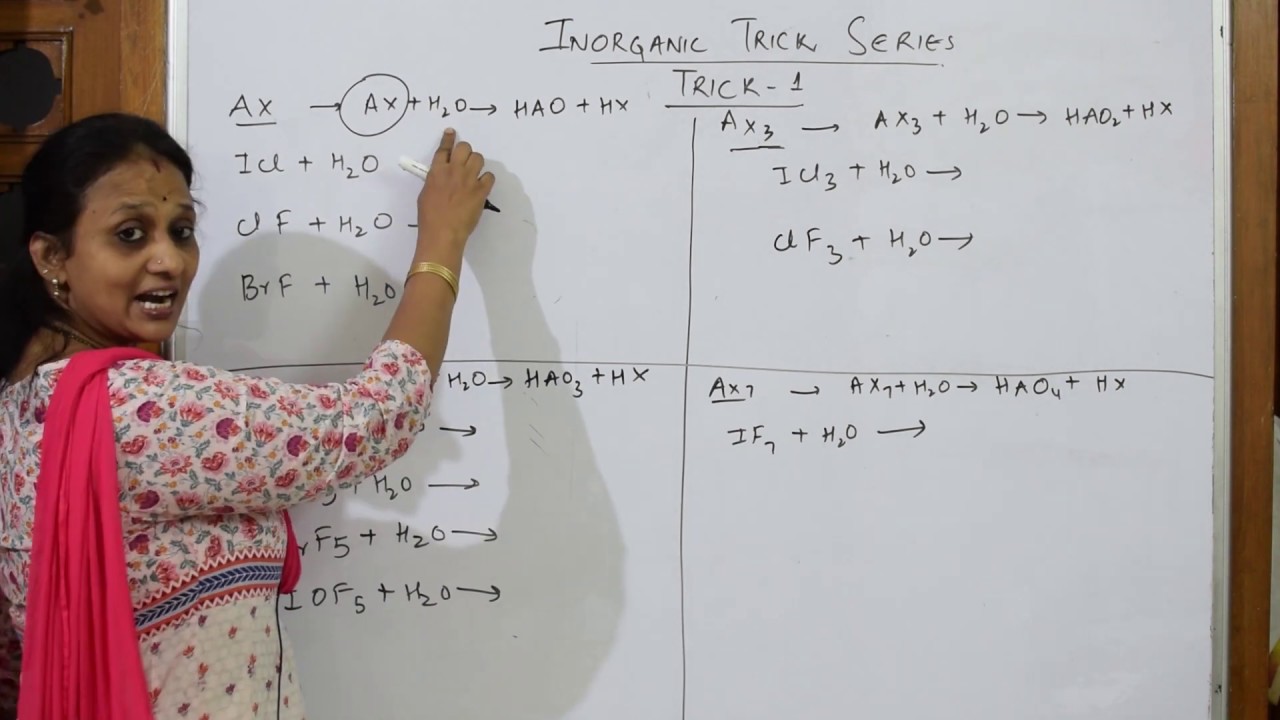 INORGANIC TRICK SERIES
TRICK-1
AX → AX + H₂O → HAO + HX
ICl + H₂O
ClF + H₂O -
BrF + H₂O
AX₃ → AX₃ + H₂O → HAO₂ + HX
ICl₃ + H₂O →
ClF₃ + H₂O →
H₂O → HAO₃ + HX
→
+ H₂O →
F₅ + H₂O →
IOF₅ + H₂O →
AX₇ → AX₇ + H₂O → HAO₄ + HX
IF₇ + H₂O →